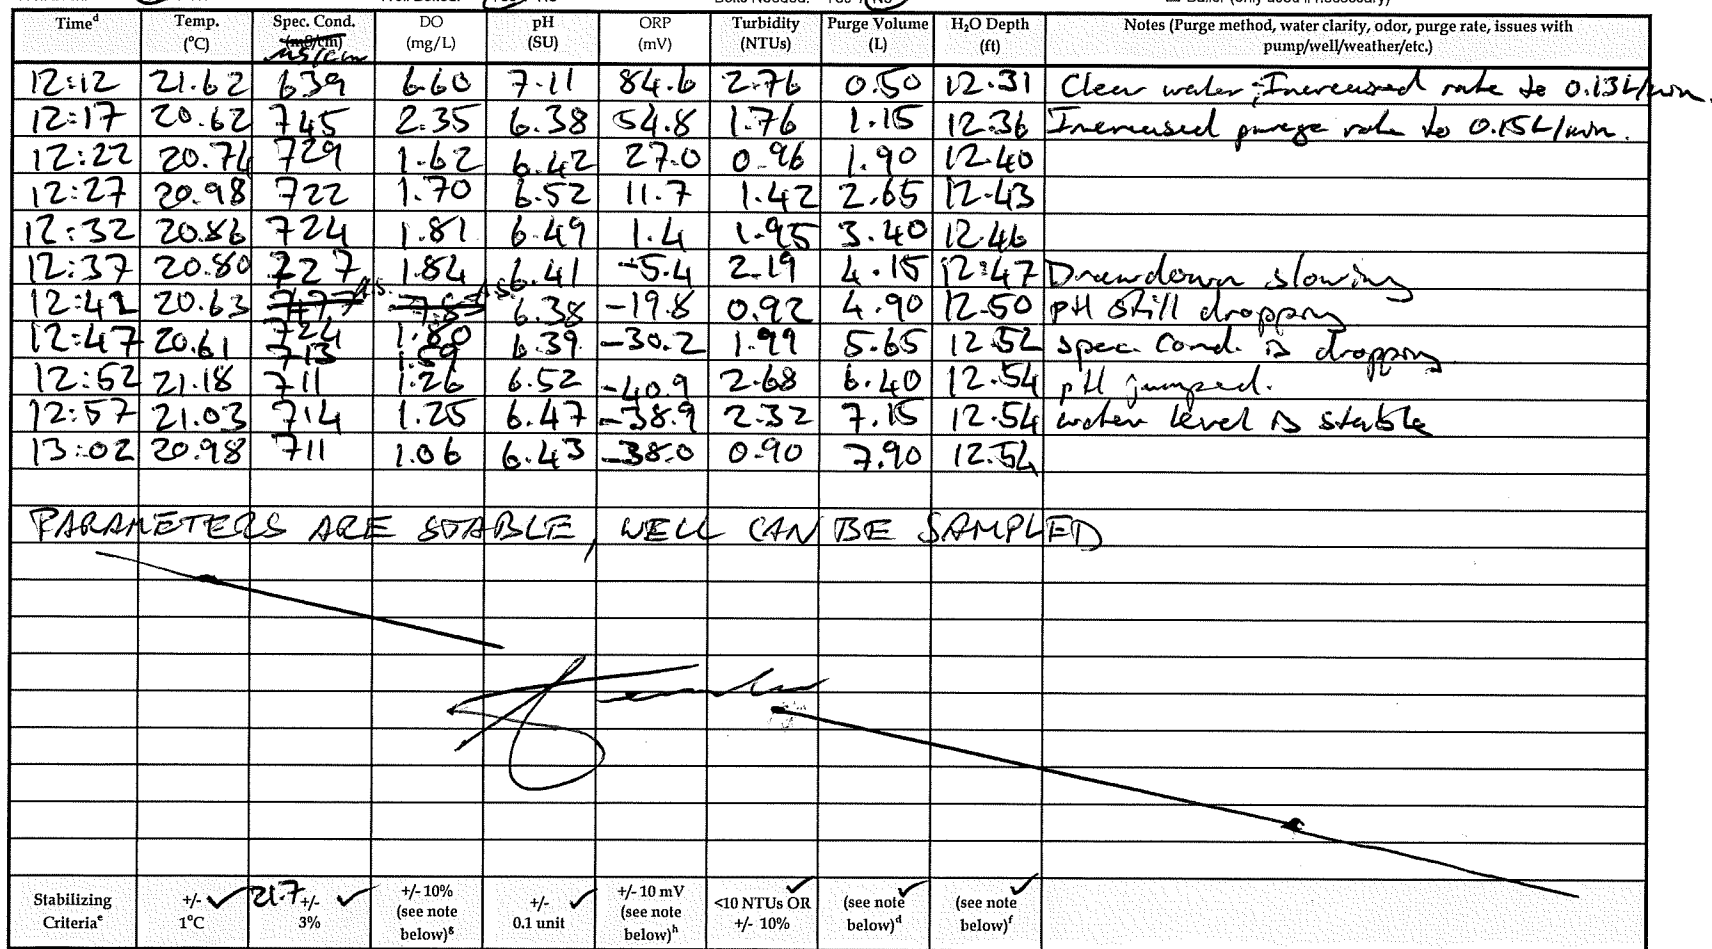 Time^d Temp. (°C) Spec. Cond. (mS/cm) uS/cm DO (mg/L) pH (SU) ORP (mV) Turbidity (NTUs) Purge Volume (L) H2O Depth (ft) Notes (Purge method, water clarity, odor, purge rate, issues with pump/well/weather/etc.)
12:12 21.62 639 6.60 7.11 84.6 2.76 0.50 12.31 Clear water; Increased rate to 0.13L/min.
12:17 20.62 745 2.35 6.38 54.8 1.76 1.15 12.36 Increased purge rate to 0.15L/min.
12:22 20.74 729 1.62 6.42 27.0 0.96 1.90 12.40
12:27 20.98 722 1.70 6.52 11.7 1.42 2.65 12.43
12:32 20.86 724 1.81 6.49 1.4 1.95 3.40 12.46
12:37 20.80 727 1.84 6.41 -5.4 2.19 4.15 12.47 Drawdown slowing
12:42 20.63 724 1.80 6.38 -19.8 0.92 4.90 12.50 pH still dropping
12:47 20.61 713 1.59 6.39 -30.2 1.99 5.65 12.52 spec. Cond. is dropping
12:52 21.18 711 1.26 6.52 -40.9 2.68 6.40 12.54 pH jumped.
12:57 21.03 714 1.25 6.47 -38.9 2.32 7.15 12.54 water level is stable
13:02 20.98 711 1.06 6.43 -38.0 0.90 7.90 12.54
PARAMETERS ARE STABLE, WELL CAN BE SAMPLED
Stabilizing Criteria^e +/- 1°C 21.7 +/- 3% +/- 10% (see note below)^g +/- 0.1 unit +/- 10 mV (see note below)^h <10 NTUs OR +/- 10% (see note below)^d (see note below)^f